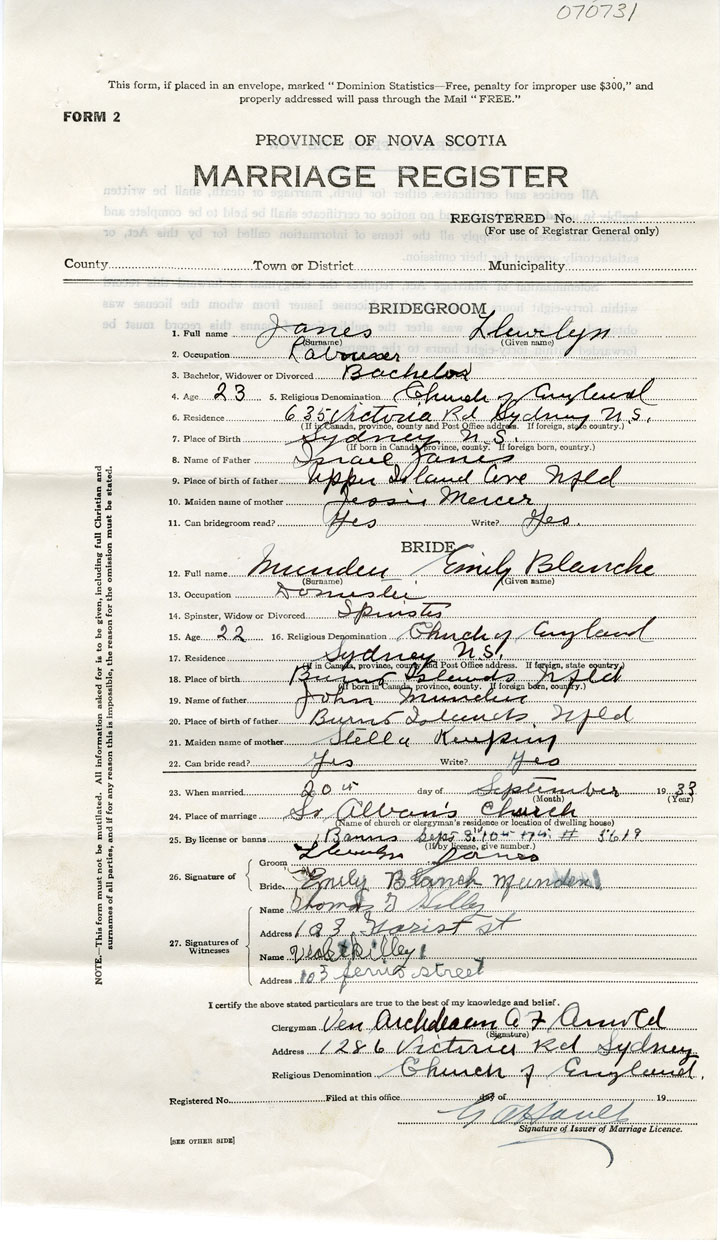 070731
This form, if placed in an envelope, marked "Dominion Statistics—Free, penalty for improper use $300," and
properly addressed will pass through the Mail "FREE."
FORM 2
PROVINCE OF NOVA SCOTIA
MARRIAGE REGISTER
REGISTERED No.
(For use of Registrar General only)
County Town or District Municipality
BRIDEGROOM
1. Full name Janes Llewelyn
(Surname) (Given name)
2. Occupation Labourer
3. Bachelor, Widower or Divorced Bachelor
4. Age 23 5. Religious Denomination Church of England
6. Residence 635 Victoria Rd Sydney N.S.
(If in Canada, province, county and Post Office address. If foreign, state country.)
7. Place of Birth Sydney N.S.
(If born in Canada, province, county. If foreign born, country.)
8. Name of Father Israel Janes
9. Place of birth of father Upper Island Cove Nfld
10. Maiden name of mother Jessie Mercer
11. Can bridegroom read? Yes Write? Yes.
BRIDE
12. Full name Munden Emily Blanche
(Surname) (Given name)
13. Occupation Domestic
14. Spinster, Widow or Divorced Spinster
15. Age 22 16. Religious Denomination Church of England
17. Residence Sydney N.S.
(If in Canada, province, county and Post Office address. If foreign, state country.)
18. Place of birth Burnt Islands Nfld
(If born in Canada, province, county. If foreign born, country.)
19. Name of father John Munden
20. Place of birth of father Burnt Islands, Nfld
21. Maiden name of mother Stella Keeping
22. Can bride read? Yes Write? Yes
23. When married 20th day of September 1933
(Month) (Year)
24. Place of marriage St Alban's Church
(Name of church or clergyman's residence or location of dwelling house)
25. By license or banns Banns Sept 3rd 10th 17th # 5619
(If by license, give number.)
26. Signature of Groom Llewelyn Janes
Bride Emily Blanch Munden
27. Signatures of Witnesses Name Thomas
Address 103 st
Name Violet Dilley
Address 103 ferris street
I certify the above stated particulars are true to the best of my knowledge and belief.
Clergyman Ven Archdeacon A F Arnold
(Signature)
Address 1286 Victoria Rd Sydney
Religious Denomination Church of England.
Registered No. Filed at this office day of 19
Signature of Issuer of Marriage Licence.
[SEE OTHER SIDE]
NOTE.—This form must not be mutilated. All information asked for is to be given, including full Christian and
surnames of all parties, and if for any reason this is impossible, the reason for the omission must be stated.